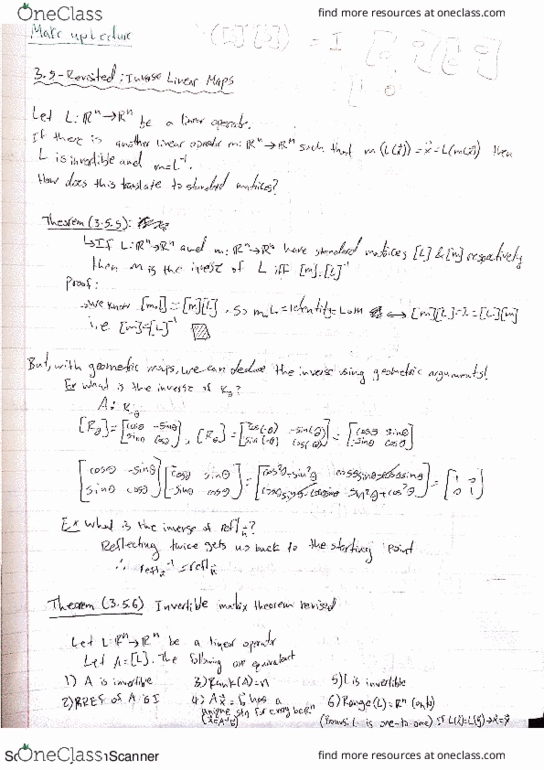 OneClass
find more resources at oneclass.com
find more resources at oneclass.com
Make up Lecture
3.5-Revisited: Inverse Linear Maps
Let L: Rⁿ→Rⁿ be a linear operator.
If there is another linear operator m: Rⁿ→Rⁿ such that m(L(x⃗))=x⃗=L(m(x⃗)) then
L is invertible and m=L⁻¹.
How does this translate to standard matrices?
Theorem (3.5.5):
↳If L: Rⁿ→Rⁿ and m: Rⁿ→Rⁿ have standard matrices [L] & [m] respectively
then m is the inverse of L iff [m]=[L]⁻¹
Proof:
we know [m∘L]=[m][L], so m∘L=identity=L∘m ⟷ [m][L]=I=[L][m]
i.e. [m]=[L]⁻¹
But, with geometric maps, we can deduce the inverse using geometric arguments!
Ex what is the inverse of Rθ?
A: R-θ
[Rθ]=[cosθ -sinθ sinθ cosθ], [Rθ]=[cos(-θ) -sin(-θ) sin(-θ) cos(-θ)]=[cosθ sinθ -sinθ cosθ]
[cosθ -sinθ sinθ cosθ][cosθ sinθ -sinθ cosθ]=[cos²θ+sin²θ cosθsinθ-cosθsinθ cosθsinθ-cosθsinθ sin²θ+cos²θ]=[1 0 0 1]
Ex what is the inverse of refl n⃗?
Reflecting twice gets us back to the starting point
∴ refl n⃗⁻¹=refl n⃗
Theorem (3.5.6) Invertible matrix theorem revised
Let L: Rⁿ→Rⁿ be a linear operator
Let A=[L]. The following are equivalent
1) A is invertible 3) Rank(A)=n 5) L is invertible
2) RREF of A is I 4) Ax⃗=b⃗ has a unique soln for every b⃗∈Rⁿ 6) Range(L)=Rⁿ (onto)
L is one-to-one) if L(x⃗)=L(y⃗)→x⃗=y⃗
OneClass
Scanner
find more resources at oneclass.com